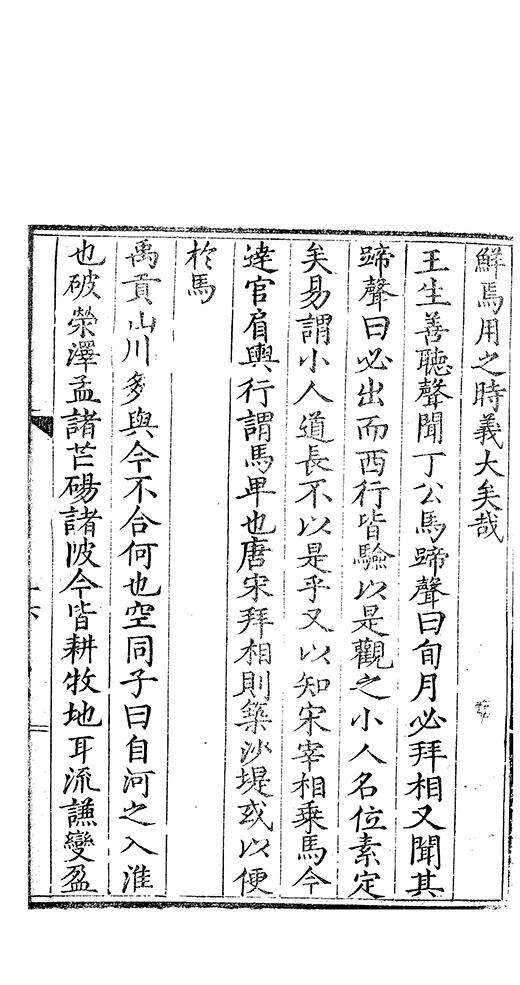 鮮焉用之時義大矣哉
王生善聽聲聞丁公馬蹄聲曰旬月必拜相又聞其
蹄聲曰必出而西行皆驗以是觀之小人名位素定
矣易謂小人道長不以是乎又以知宋宰相乗馬今
達官肩輿行謂馬卑也唐宋拜相則築沙堤或以便
於馬
禹貢山川多與今不合何也空同子曰自河之入淮
也破滎澤孟諸芒碭諸陂今皆耕牧地耳流謙變盈